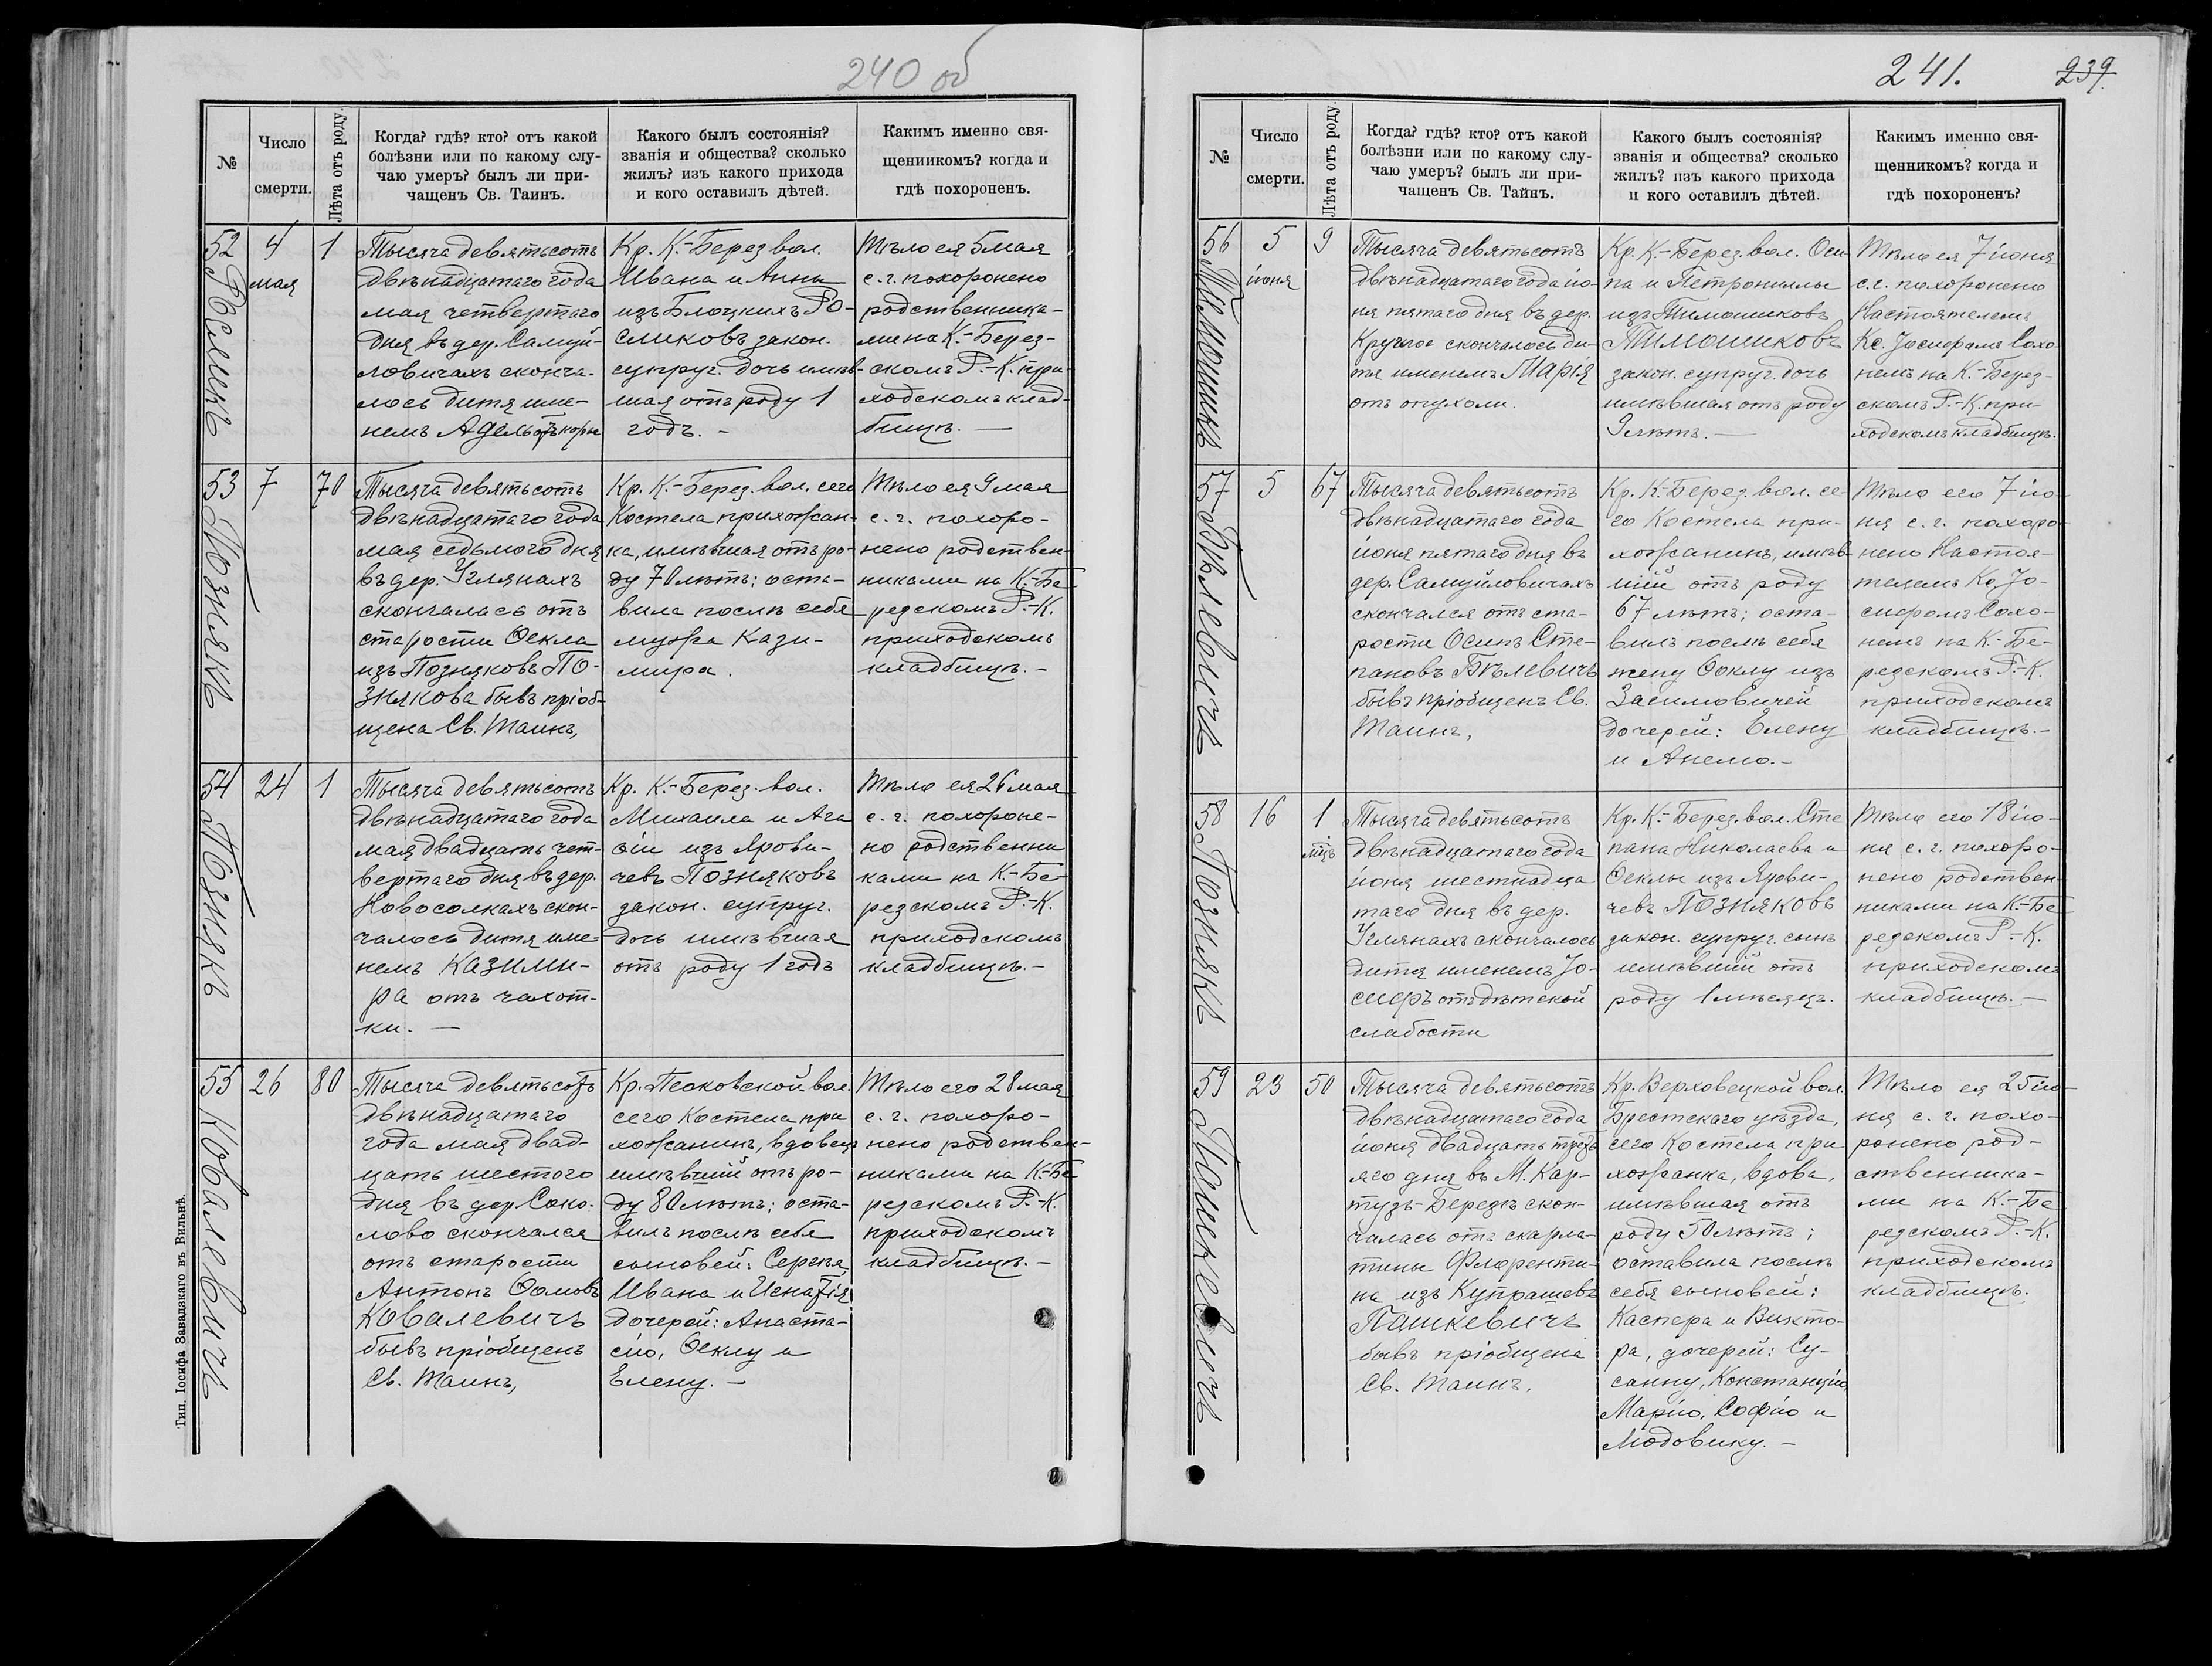 240 об
№
Число
смерти.
Лѣта отъ роду.
Когда? гдѣ? кто? отъ какой
болѣзни или по какому слу-
чаю умеръ? былъ ли при-
чащенъ Св. Таинъ.
Какого былъ состоянія?
званія и общества? сколько
жилъ? изъ какого прихода
и кого оставилъ дѣтей.
Какимъ именно свя-
щенникомъ? когда и
гдѣ похороненъ.
52
4
мая
1
Тысяча девятьсотъ
двѣнадцатаго года
мая четвертаго
дня въ дер. Самуй-
ловичахъ сконча-
лось дитя име-
немъ Адель отъ кори
Кр. К.-Берез вол.
Ивана и Анны
изъ Блоцкихъ Ро-
сликовъ закон.
супруг. дочь имѣв-
шая отъ роду 1
годъ. –
Тѣло ея 5 мая
с. г. похоронено
родственника-
ми на К.-Берез-
скомъ Р.-К. при-
ходскомъ клад-
бищѣ. —
53
Познякъ
7
70
Тысяча девятьсотъ
двѣнадцатаго года
мая седьмого дня
въ дер. Углянахъ
скончалась отъ
старости Ѳекла
изъ Позняковъ По-
знякова бывъ пріоб-
щена Св. Таинъ,
Кр. К.-Берез. вол. сего
Костела прихожан-
ка, имѣвшая отъ ро-
ду 70 лѣтъ; оста-
вила послѣ себя
мужа Кази-
мира.
Тѣло ея 9 мая
с. г. похоро-
нено родствен-
никами на К.-Бе-
резскомъ Р.-К.
приходскомъ
кладбищѣ. –
54
Познякъ
24
1
Тысяча девятьсотъ
двѣнадцатаго года
мая двадцать чет-
вертаго дня въ дер.
Новосолкахъ скон-
чалось дитя име-
немъ Казими-
ра отъ чахот-
ки. —
Кр. К.-Берез. вол.
Михаила и Ага
ѳіи изъ Ярови-
чевъ Позняковъ
закон. супруг.
дочь имѣвшая
отъ роду 1 годъ
Тѣло ея 26 мая
с. г. похороне-
но родственни
ками на К-Бе-
резскомъ Р.-К.
приходскомъ
кладбищѣ. –
55
Ковалевичъ
26
80
Тысяча девятьсотъ
двѣнадцатаго
года мая двад-
цать шестого
дня въ дер. Соко-
лово скончался
отъ старости
Антонъ Ѳомовъ
Ковалевичъ
бывъ пріобщенъ
Св. Таинъ,
Кр. Песковской вол.
сего Костела при
хожанинъ, вдовецъ
имѣвшій отъ ро-
ду 80 лѣтъ; оста-
вилъ послѣ себя
сыновей: Сергѣя,
Ивана и Игнатія
дочерей: Анаста-
сію, Ѳеклу и
Елену. –
Тѣло его 28 мая
с. г. похоро-
нено родствен-
никами на К.-Бе
резскомъ Р.-К.
приходскомъ
кладбищѣ. –
Тип. Іосифа Завадзкаго въ Вильнѣ.
241.
239.
№
Число
смерти.
Лѣта отъ роду.
Когда? гдѣ? кто? отъ какой
болѣзни или по какому слу-
чаю умеръ? былъ ли при-
чащенъ Св. Тайнъ.
Какого былъ состоянія?
званія и общества? сколько
жилъ? изъ какого прихода
и кого оставилъ дѣтей.
Какимъ именно свя-
щенникомъ? когда и
гдѣ похороненъ?
56
Тимошикъ
5
іюня
9
Тысяча девятьсотъ
двѣнадцатаго года ію-
ня пятаго дня въ дер.
Кручное скончалось ди-
тя именемъ Марія
отъ опухоли.
Кр. К.-Берез. вол. Оси
па и Петрониллы
изъ Тимошиковъ
Тимошиковъ
закон. супруг. дочь
имѣвшая отъ роду
9 лѣтъ. —
Тѣло ея 7 іюня
с. г. похоронено
Настоятелемъ
Кс. Іосифомъ Сохо
немъ на К.-Берез-
скомъ Р.-К. при-
ходскомъ кладбищѣ.
57
Бѣлевичъ
5
67
Тысяча девятьсотъ
двѣнадцатаго года
іюня пятаго дня въ
дер. Самуйловичахъ
скончался отъ ста-
рости Осипъ Сте-
пановъ Бѣлевичъ
бывъ пріобщенъ Св.
Таинъ,
Кр. К.-Берез. вол. се-
го Костела при-
хожанинъ, имѣв-
шій отъ роду
67 лѣтъ; оста-
вилъ послѣ себя
жену Ѳеклу изъ
Засимовичей
дочерей: Елену
и Анелю. –
Тѣло его 7 ію-
ня с. г. похоро-
нено Настоя-
телемъ Кс. Іо-
сифомъ Сохо-
немъ на К.-Бе-
резскомъ Р.-К.
приходскомъ
кладбищѣ. –
58
Познякъ
16
1
мѣс
Тысяча девятьсотъ
двѣнадцатаго года
іюня шестнадца
таго дня въ дер.
Углянахъ скончалось
дитя именемъ Іо-
сифъ отъ дѣтской
слабости
Кр. К.-Берез. вол. Сте
пана Николаева и
Ѳеклы изъ Ярови-
чевъ Позняковъ
закон. супруг. сынъ
имѣвшій отъ
роду 1 мѣсяцъ.
Тѣло его 18 ію-
ня с. г. похоро-
нено родствен-
никами на К.-Бе
резскомъ Р.-К.
приходскомъ
кладбищѣ. —
59
Пашкевичъ
23
50
Тысяча девятьсотъ
двѣнадцатаго года
іюня двадцать треть
яго дня въ М. Кар-
тузъ-Березѣ скон-
чалась отъ скарла-
тины Флоренти-
на изъ Купрашевъ
Пашкевичъ
бывъ пріобщена
Св. Таинъ.
Кр. Верховецкой вол.
Брестскаго уѣзда,
сего Костела при
хожанка, вдова,
имѣвшая отъ
роду 50 лѣтъ;
оставила послѣ
себя сыновей:
Каспера и Викто-
ра, дочерей: Су-
санну, Констанцію,
Марію, Софію и
Людовику. –
Тѣло ея 25 ію-
ня с. г. похо-
ронено род-
ственника-
ми на К.-Бе
резскомъ Р.-К.
приходскомъ
кладбищѣ.